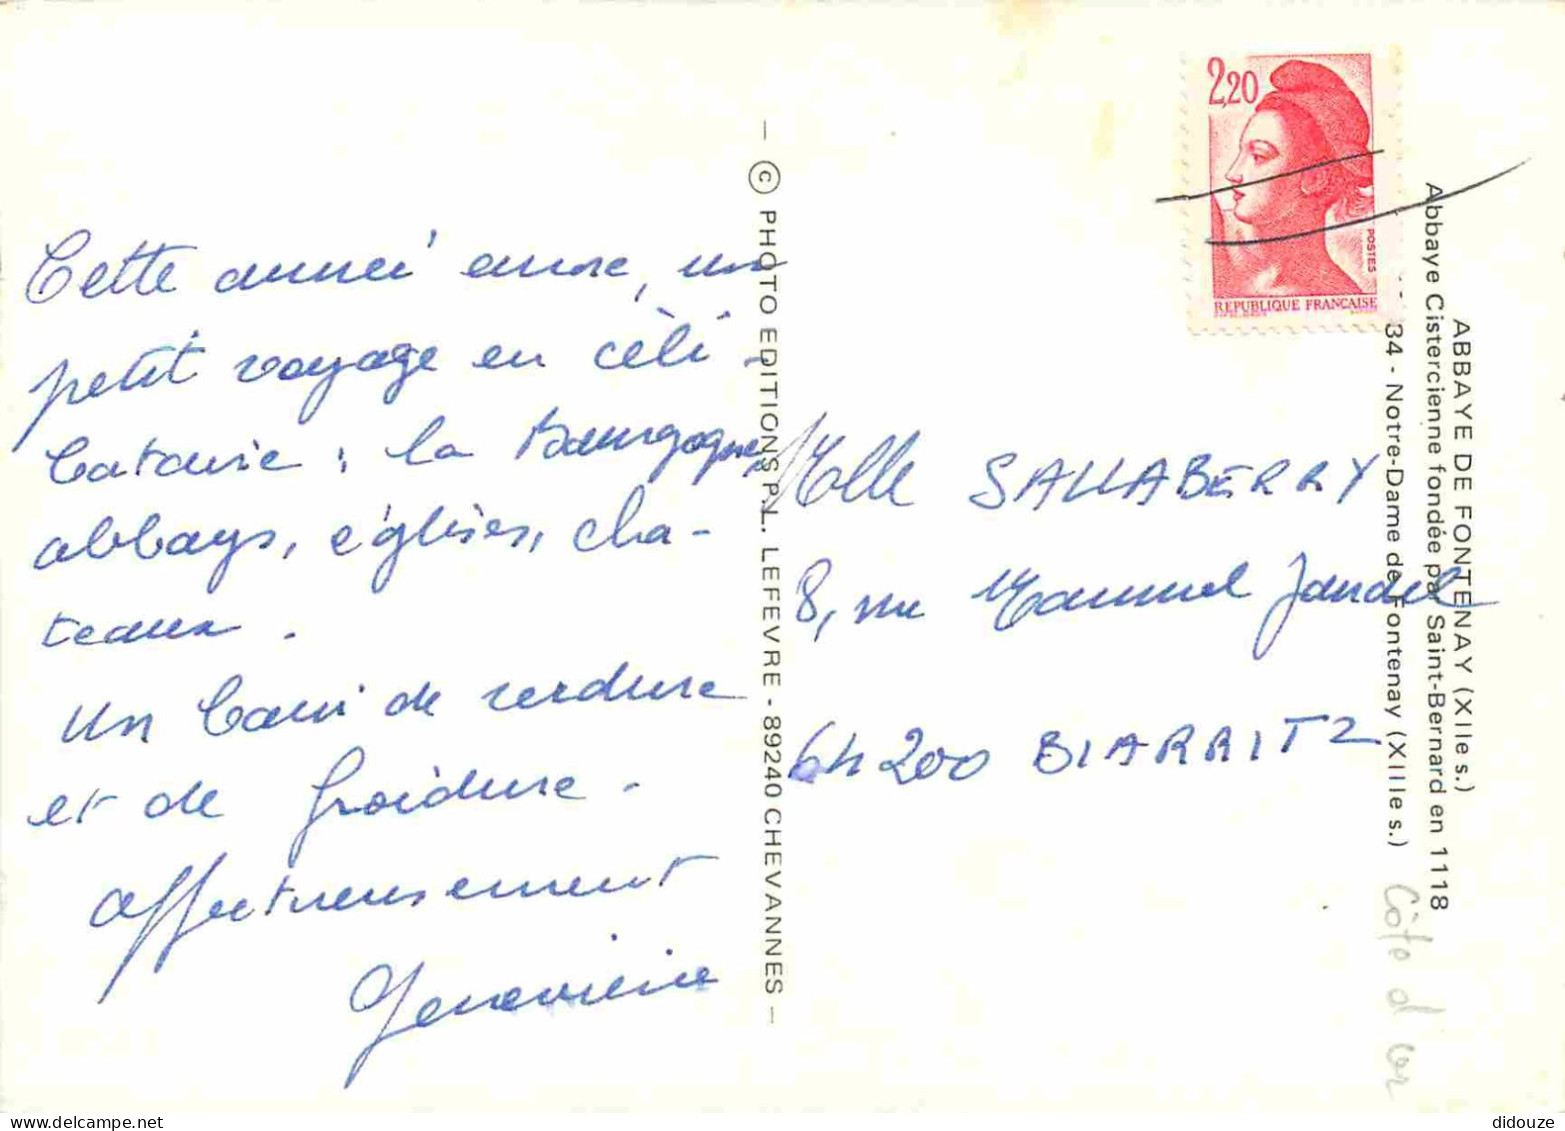 Cette année encore, un
petit voyage en céli-
bataire : la Bourgogne,
abbays, églises, cha-
teaux.
Un bain de verdure
et de froidure.
Affectueusement
Geneviève
— © PHOTO EDITIONS P.L. LEFEVRE - 89240 CHEVANNES —
2,20
POSTES
REPUBLIQUE FRANCAISE
Melle SALLABERRY
8, rue
64200 BIARRITZ
ABBAYE DE FONTENAY (XIIe s.)
Abbaye Cistercienne fondée par Saint-Bernard en 1118
34 - Notre-Dame de Fontenay (XIIIe s.)
Côte d'or
didouze